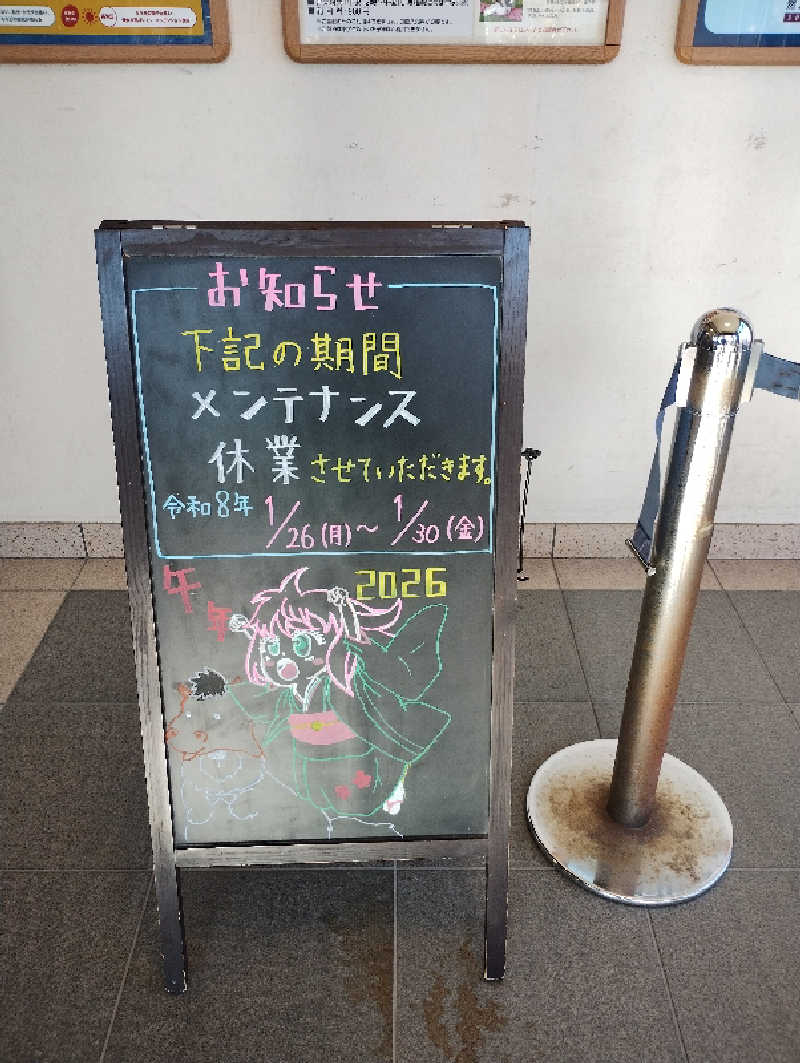 お知らせ
下記の期間
メンテナンス
休業させていただきます。
令和8年 1/26(月)～1/30(金)
午年
2026